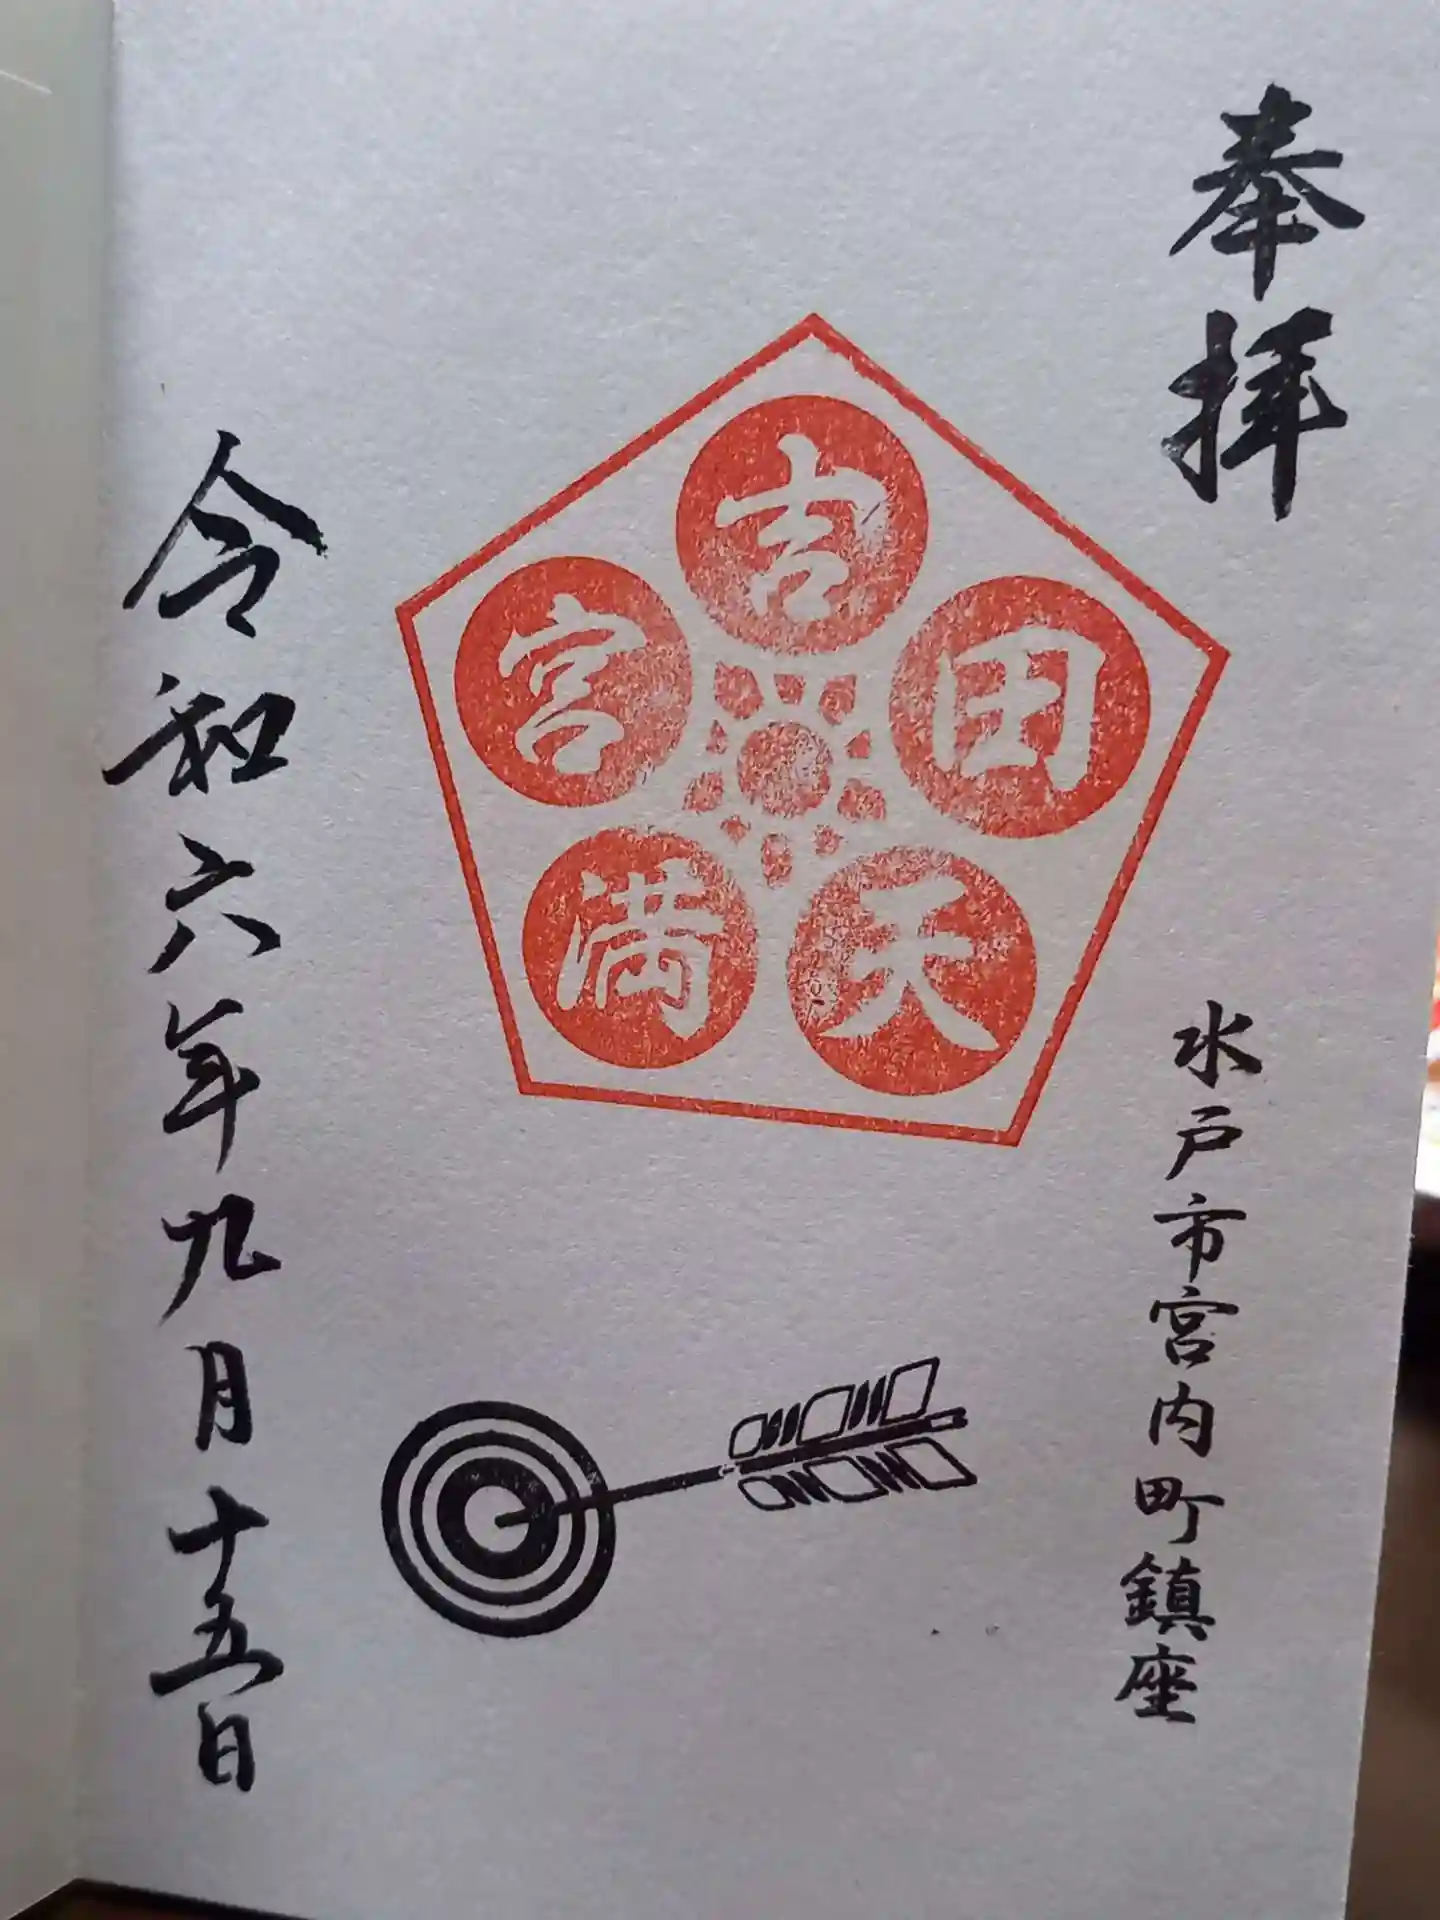 奉拝
水戸市宮内町鎮座
吉田天満宮
令和六年九月十五日